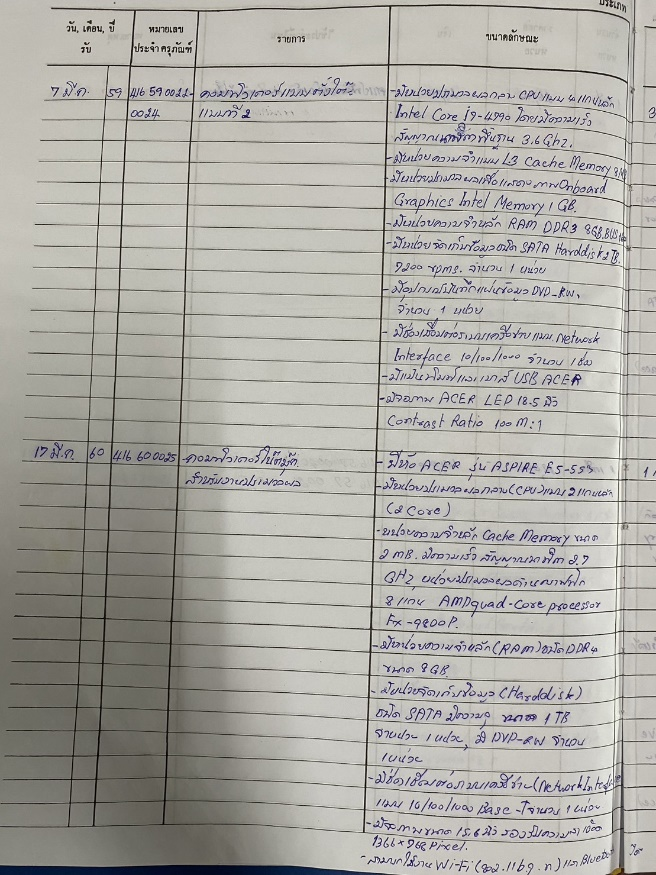 ประเภท
วัน, เดือน, ปี
รับ
หมายเลข
ประจำครุภัณฑ์
รายการ
ขนาดลักษณะ
7 มี.ค. 59 416 590022- คอมพิวเตอร์แบบตั้งโต๊ะ - มีหน่วยประมวลผลกลาง CPU แบบ 4 แกนหลัก
0024 แบบที่ 2 Intel Core i7-4790 โดยมีความเร็ว
สัญญาณนาฬิกาพื้นฐาน 3.6 Ghz.
- มีหน่วยความจำแบบ L3 Cache Memory 8 MB
- มีหน่วยประมวลผลเพื่อแสดงภาพ Onboard
Graphics Intel Memory 1 GB.
- มีหน่วยความจำหลัก RAM DDR3 8GB, BUS
- มีหน่วยจัดเก็บข้อมูลชนิด SATA Harddisk 2 TB.
7200 rpms. จำนวน 1 หน่วย
- มีอุปกรณ์บันทึกแผ่นข้อมูล DVD-RW,
จำนวน 1 หน่วย
- มีช่องเชื่อมต่อระบบเครือข่ายแบบ Network
Interface 10/100/1000 จำนวน 1 ช่อง
- มีแป้นพิมพ์และเมาส์ USB ACER
- มีจอภาพ ACER LED 18.5 นิ้ว
Contrast Ratio 100 M:1
17 มี.ค. 60 416 600025 - คอมพิวเตอร์โน๊ตบุ๊ค - ยี่ห้อ ACER รุ่น ASPIRE E5-553
สำหรับงานประมวลผล - มีหน่วยประมวลผลกลาง (CPU) แบบ 2 แกนหลัก
(2 Core)
- หน่วยความจำหลัก Cache Memory ขนาด
2 MB. มีความเร็วสัญญาณนาฬิกา 2.7
GHz หน่วยประมวลผลด้านกราฟฟิก
8 แกน AMD quad-Core processor
FX-9800P.
- มีหน่วยความจำหลัก (RAM) ชนิด DDR4
ขนาด 8GB
- มีหน่วยจัดเก็บข้อมูล (Harddisk)
ชนิด SATA มีความจุ ขนาด 1 TB
จำนวน 1 หน่วย, มี DVD-RW จำนวน
1 หน่วย
- มีช่องเชื่อมต่อระบบเครือข่าย (Network Interface
แบบ 10/100/1000 Base-T จำนวน 1 หน่วย
- มีจอภาพขนาด 15.6 นิ้ว รองรับความละเอียด
1366 x 768 Pixel.
- สามารถใช้งาน Wi-Fi (802.11bg.n) และ Bluetooth